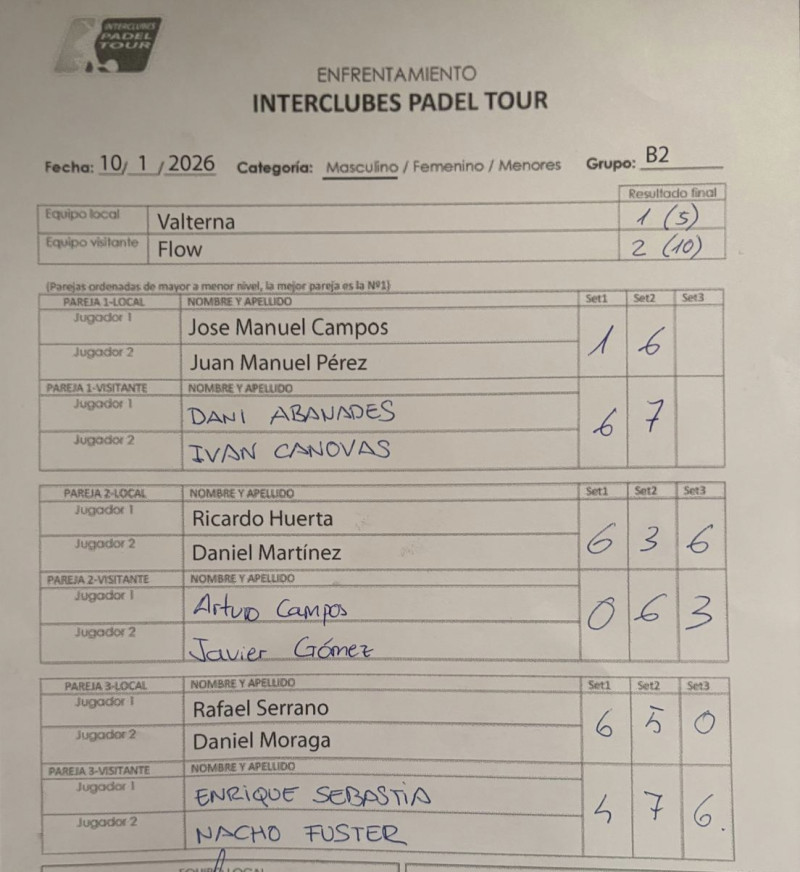 INTERCLUBES
PADEL
TOUR
ENFRENTAMIENTO
INTERCLUBES PADEL TOUR
Fecha: 10/ 1 / 2026 Categoría: Masculino / Femenino / Menores Grupo: B2
Resultado final
Equipo local Valterna 1 (5)
Equipo visitante Flow 2 (10)
(Parejas ordenadas de mayor a menor nivel, la mejor pareja es la Nº1)
PAREJA 1-LOCAL NOMBRE Y APELLIDO Set1 Set2 Set3
Jugador 1 Jose Manuel Campos
1 6
Jugador 2 Juan Manuel Pérez
PAREJA 1-VISITANTE NOMBRE Y APELLIDO
Jugador 1 DANI ABANADES
6 7
Jugador 2 IVAN CANOVAS
PAREJA 2-LOCAL NOMBRE Y APELLIDO Set1 Set2 Set3
Jugador 1 Ricardo Huerta
6 3 6
Jugador 2 Daniel Martínez
PAREJA 2-VISITANTE NOMBRE Y APELLIDO
Jugador 1 Arturo Campos
0 6 3
Jugador 2 Javier Gómez
PAREJA 3-LOCAL NOMBRE Y APELLIDO Set1 Set2 Set3
Jugador 1 Rafael Serrano
6 5 0
Jugador 2 Daniel Moraga
PAREJA 3-VISITANTE NOMBRE Y APELLIDO
Jugador 1 ENRIQUE SEBASTIÀ
4 7 6.
Jugador 2 NACHO FUSTER
EQUIPO LOCAL